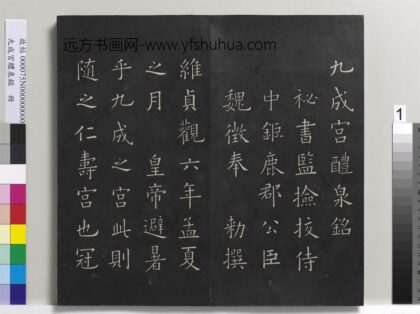 九成宫醴泉銘
祕書監撿挍侍
中鉅鹿郡公臣
魏徵奉 勑撰
維貞觀六年孟夏
之月 皇帝避暑
乎九成之宫此則
随之仁壽宫也冠
远方书画网-www.yfshuhua.com
九成宮醴泉銘 冊
1